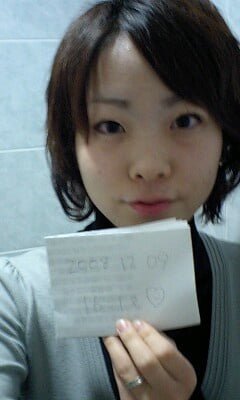 2008 12 09
16:18 ♡